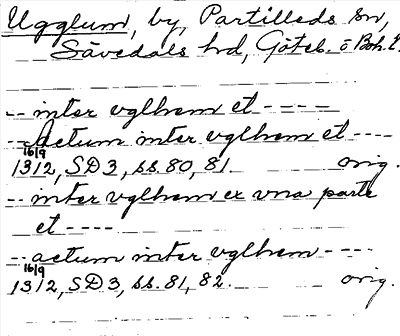 Ugglum, by, Partilleds sn,
Sävedals hd, Göteb. o Boh. l.
-- inter vglhem et ----
-- Actum inter vglhem et ----
16/9
1312, SD 3, ss. 80, 81. orig.
-- inter vglhem ex vna parte
et ----
-- actum inter vglhem ----
16/9
1312, SD 3, ss. 81, 82. orig.